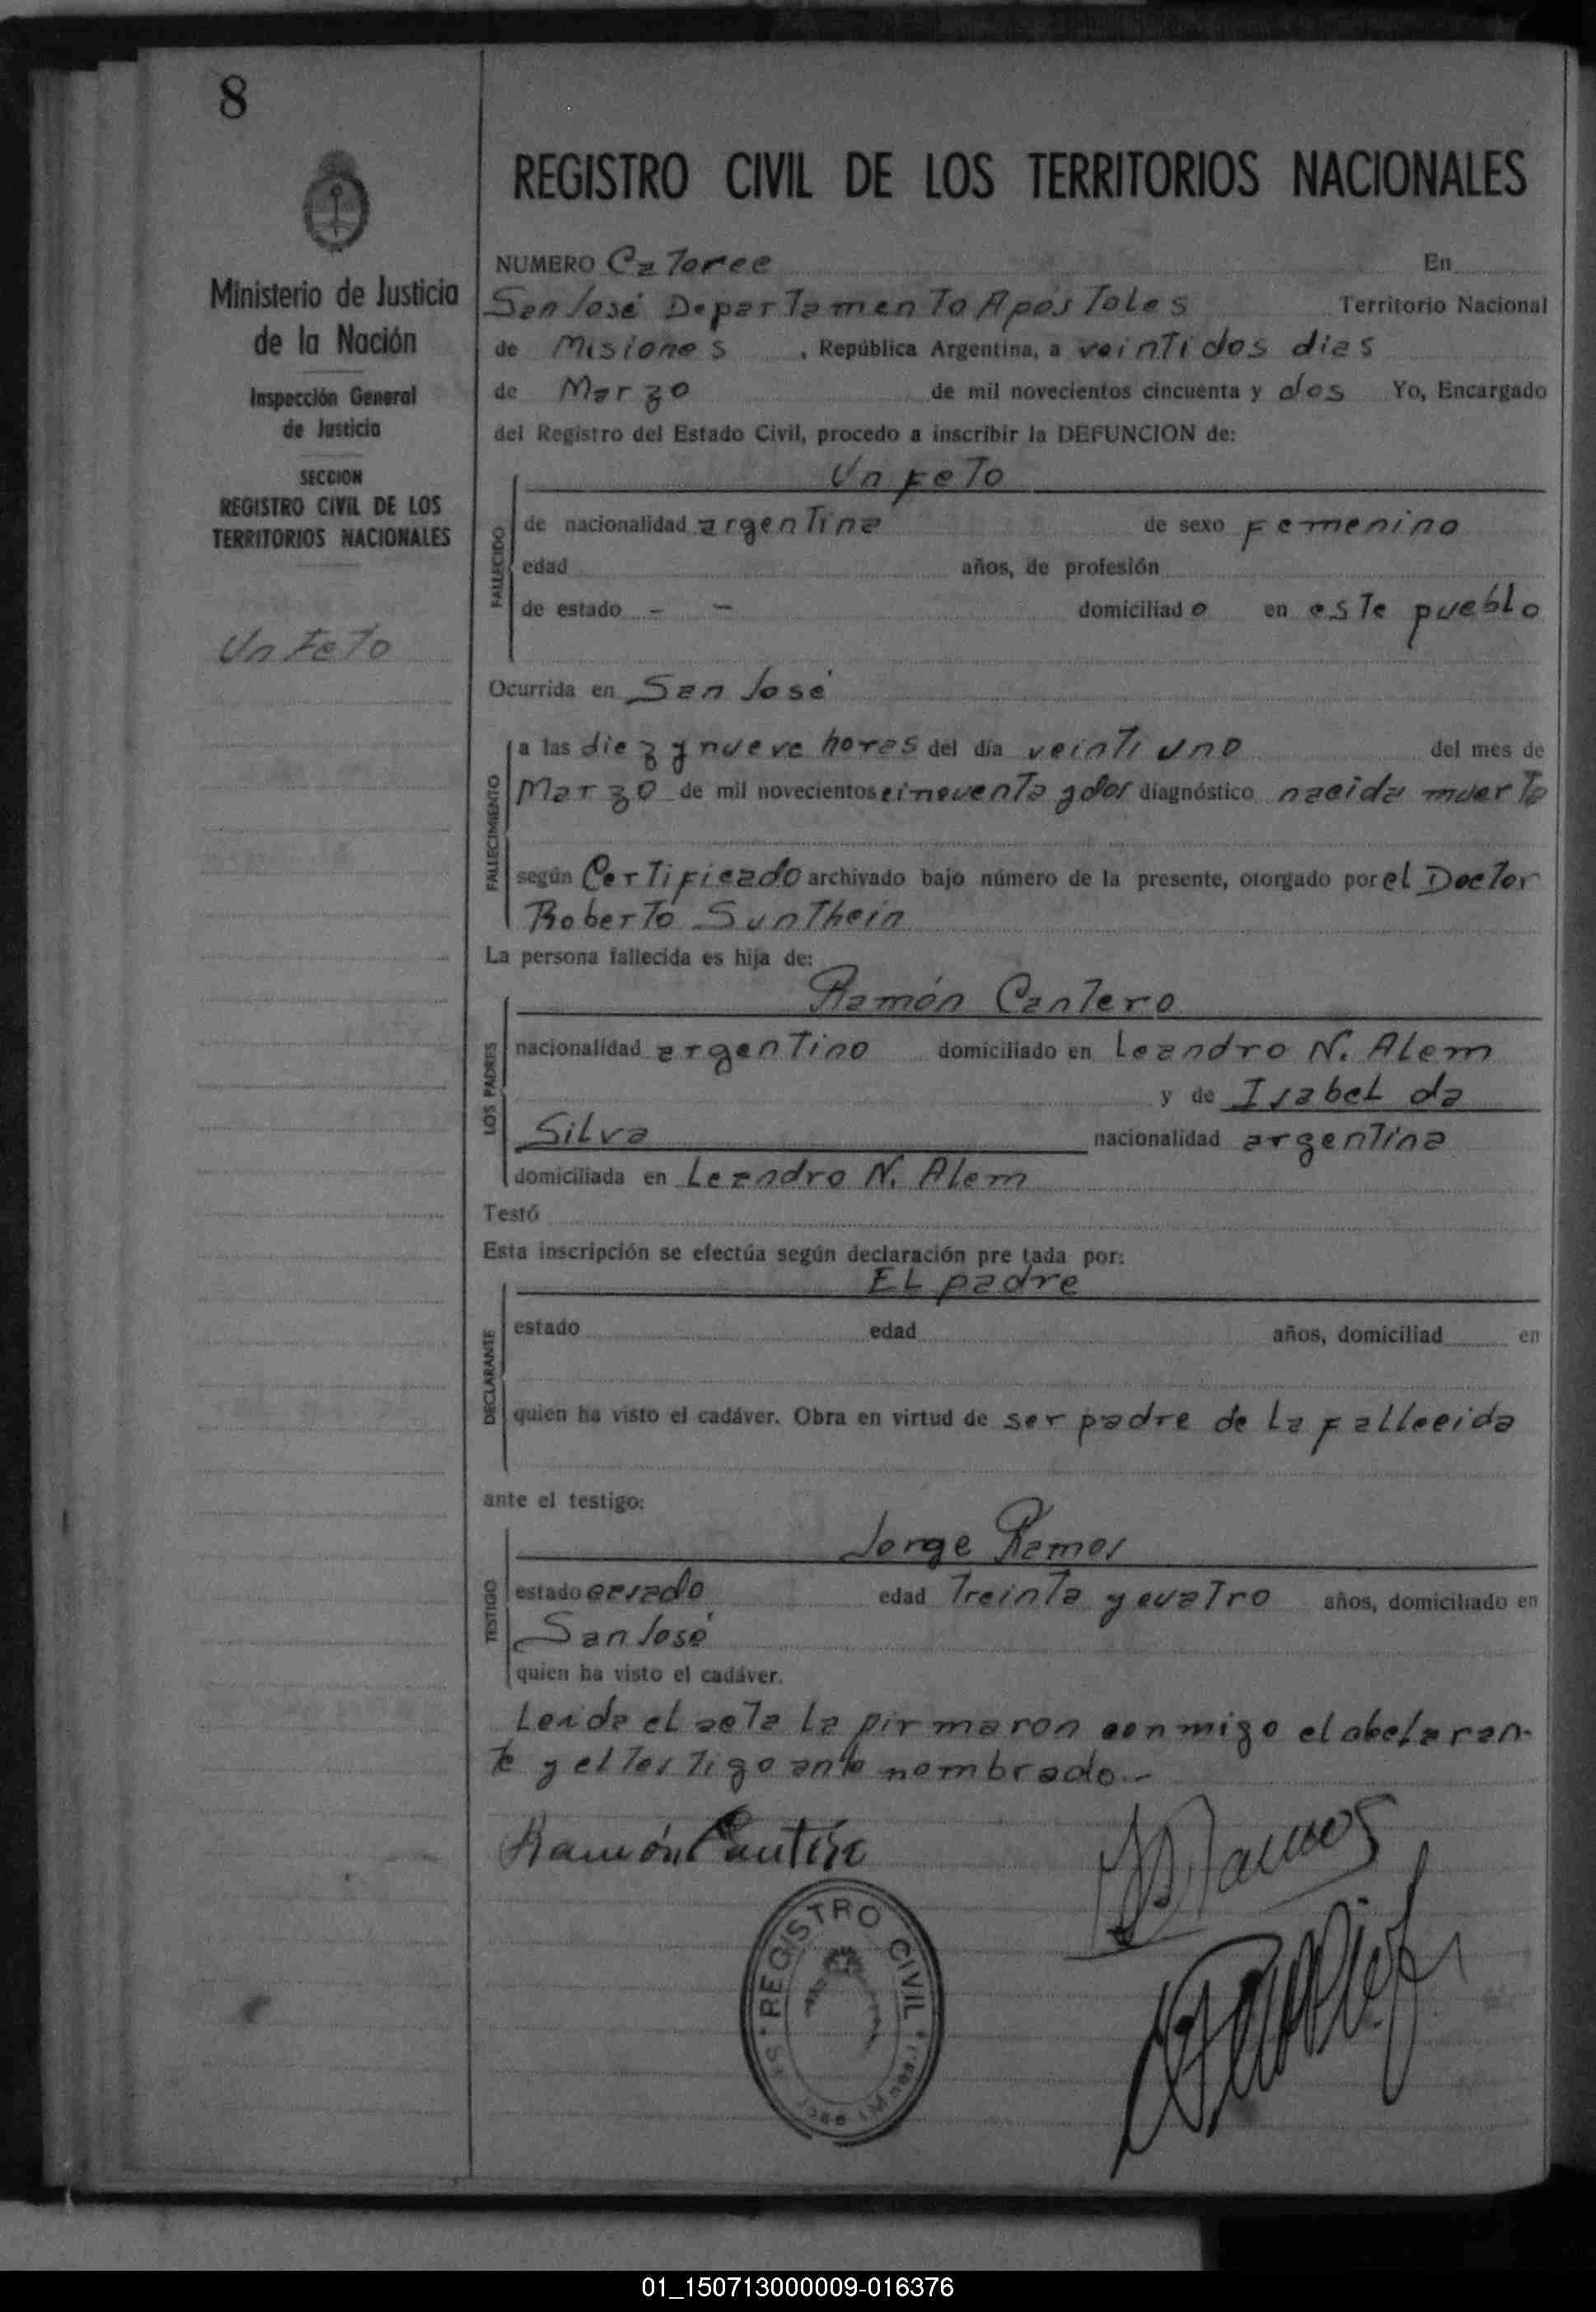 8
Ministerio de Justicia
de la Nación
Inspección General
de Justicia
SECCION
REGISTRO CIVIL DE LOS
TERRITORIOS NACIONALES
Un Feto
REGISTRO CIVIL DE LOS TERRITORIOS NACIONALES
NUMERO Catorce En
San José Departamento Apóstoles Territorio Nacional
de Misiones , República Argentina, a veintidos dias
de Marzo de mil novecientos cincuenta y dos Yo, Encargado
del Registro del Estado Civil, procedo a inscribir la DEFUNCION de:
Un Feto
FALLECIDO
de nacionalidad argentina de sexo Femenino
edad años, de profesión
de estado - - domiciliado en este pueblo
Ocurrida en San José
FALLECIMIENTO
a las diez y nueve horas del día veintiuno del mes de
Marzo de mil novecientos cincuenta y dos diagnóstico nacida muerta
según Certificado archivado bajo número de la presente, otorgado por el Doctor
Roberto Sunthein
La persona fallecida es hija de:
LOS PADRES
Ramón Cantero
nacionalidad argentino domiciliado en Leandro N. Alem
y de Isabel da
Silva nacionalidad argentina
domiciliada en Leandro N. Alem
Testó
Esta inscripción se efectúa según declaración pre tada por:
El padre
DECLARANTE
estado edad años, domiciliad en
quien ha visto el cadáver. Obra en virtud de ser padre de la fallecida
ante el testigo:
Jorge Ramos
TESTIGO
estado casado edad treinta y cuatro años, domiciliado en
San José
quien ha visto el cadáver.
Leida el acta la firmaron conmigo el declaran-
te y el testigo ante nombrado.-
Ramón Cantero
Ramos
REGISTRO CIVIL
01_150713000009-016376